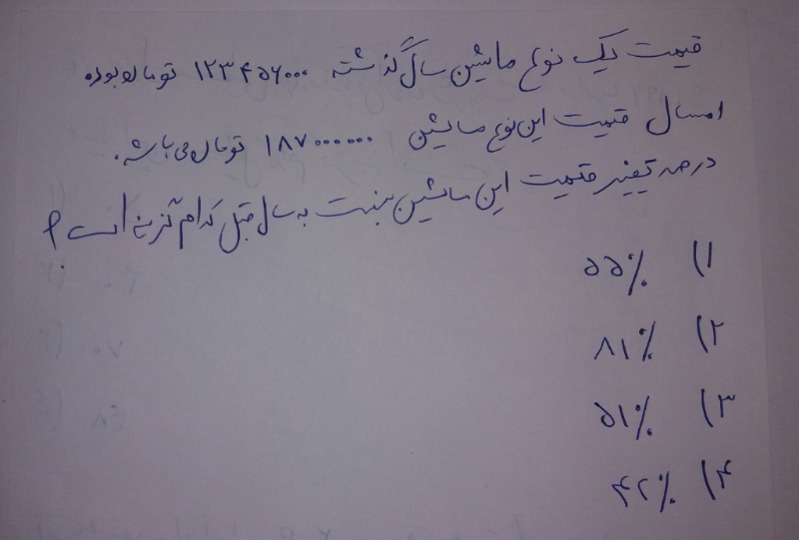 قیمت یک نوع ماشین سال گذشته ۱۲۳۴۵۶۰۰۰ تومان بوده
امسال قیمت این نوع ماشین ۱۸۷۰۰۰۰۰۰ تومان می باشد.
درصد تغییر قیمت این ماشین نسبت به سال قبل کدام گزینه است؟
۱) ۵۵%
۲) ۸۱%
۳) ۵۱%
۴) ۴۲%